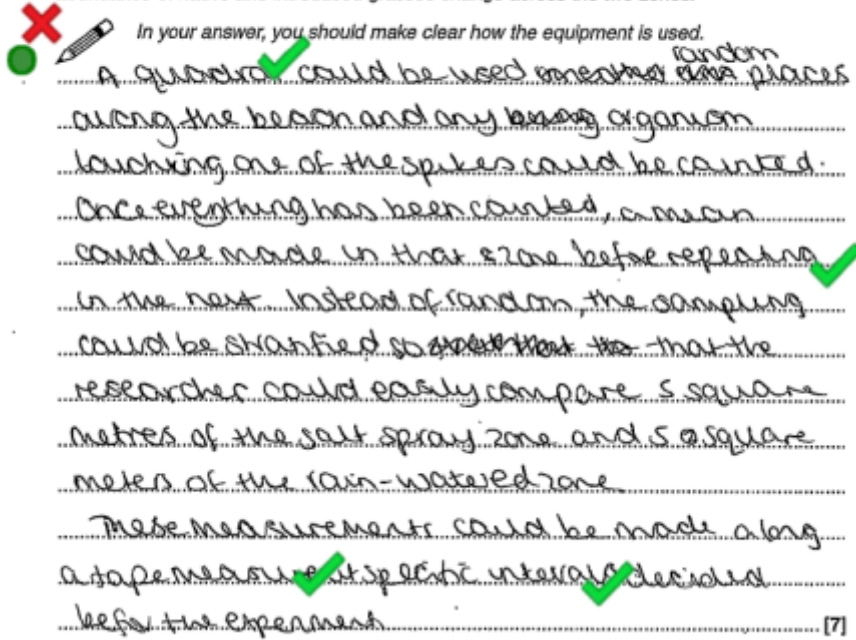 In your answer, you should make clear how the equipment is used.
random
A quadrat could be used places
along the beach and any organism
touching one of the spikes could be counted.
Once everything has been counted, a mean
could be made in that zone before repeating
in the next. Instead of random, the sampling
could be stratified so that the
researcher could easily compare 5 square
metres of the salt spray zone and 5 square
meters of the rain-watered zone
These measurements could be made along
a tape measure at specific intervals decided
before the experiment
[7]